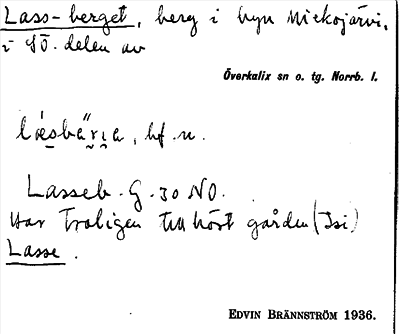 Lass-berget, berg i byn Miekojärvi,
i SÖ. delen av
Överkalix sn o. tg. Norrb. l.
bf. n.
Lasseb. G. 30 NO.
Har troligen tillhört gården (Isi)
Lasse.
EDVIN BRÄNNSTRÖM 1936.